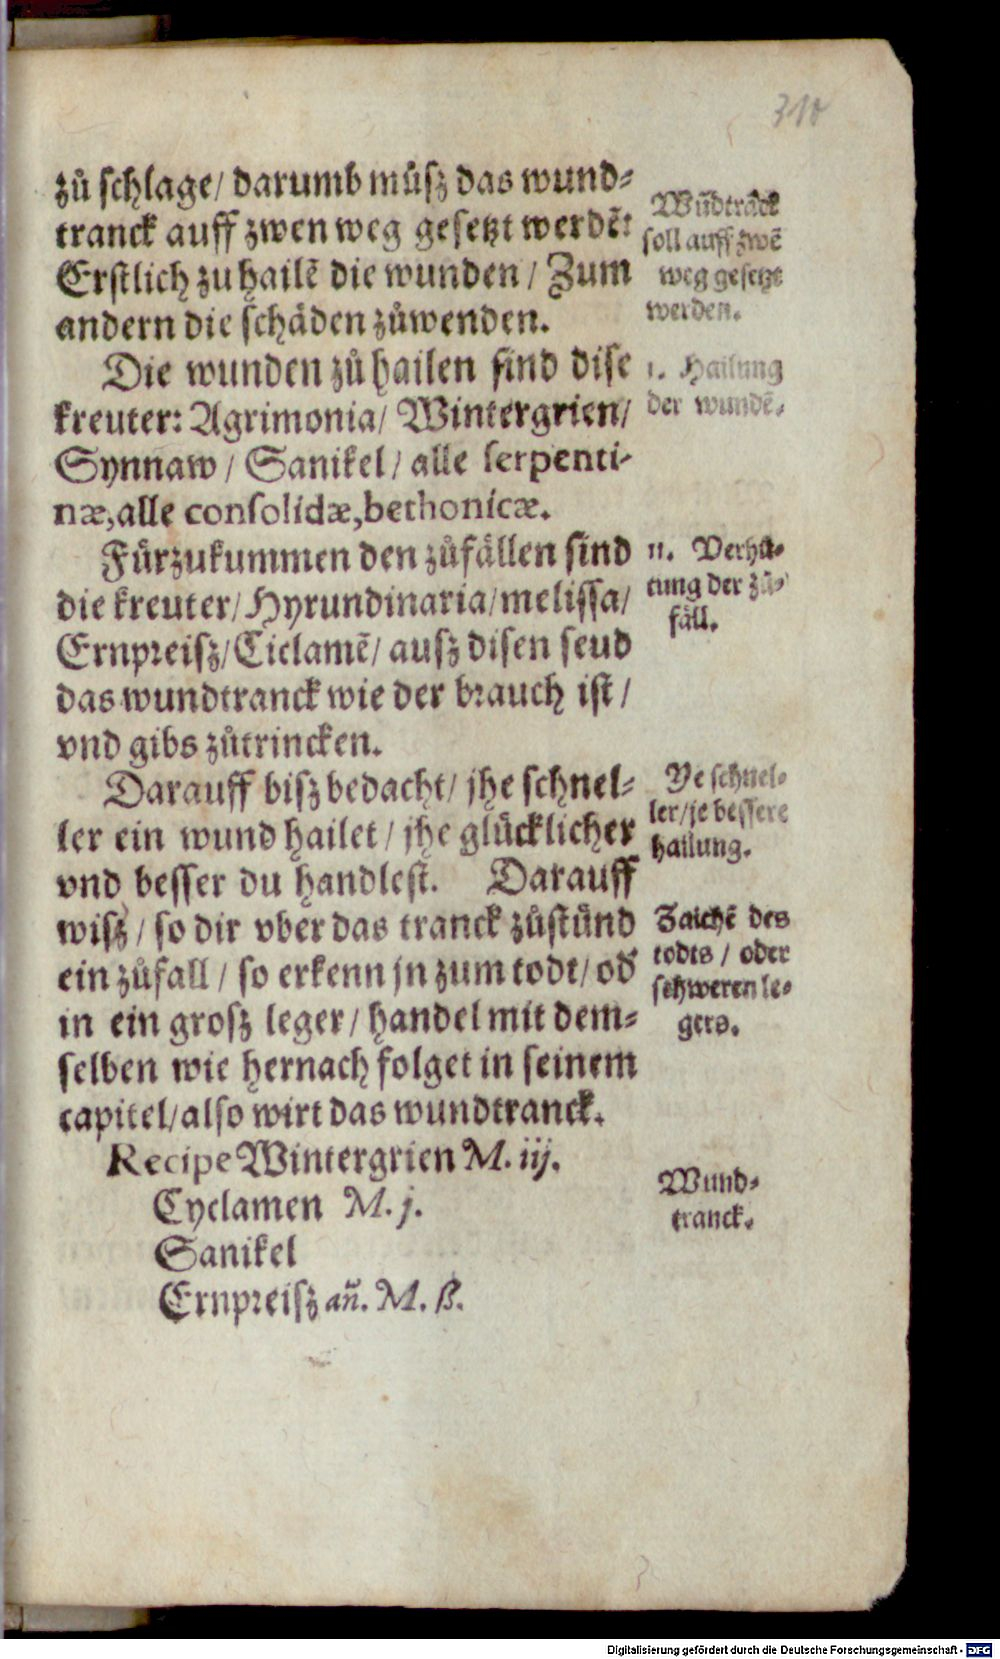 310
zů schlage/ darumb můsz das wund⸗
tranck auff zwen weg gesetzt werdẽ:
Erstlich zu hailẽ die wunden/ Zum
andern die schäden zůwenden.
Wũdtrãck
soll auff zwẽ
weg gesetzt
werden.
Die wunden zů hailen sind dise
kreuter: Agrimonia/ Wintergrien/
Synnaw/ Sanikel/ alle serpenti-
næ, alle consolidæ, bethonicæ.
1. Hailung
der wundẽ.
Fürzukummen den zůfällen sind
die kreuter/ Hyrundinaria/ melissa/
Ernpreisz/ Ciclamẽ/ ausz disen seud
das wundtranck wie der brauch ist/
vnd gibs zůtrincken.
11. Verhů⸗
tung der zů⸗
fäll.
Darauff bisz bedacht/ jhe schnel⸗
ler ein wund hailet/ jhe glücklicher
vnd besser du handlest. Darauff
wisz/ so dir vber das tranck zůstünd
ein zůfall/ so erkenn jn zum todt/ od̃
in ein grosz leger/ handel mit dem⸗
selben wie hernach folget in seinem
capitel/ also wirt das wundtranck.
Ye schnel⸗
ler/ je bessere
hailung.
Zaichẽ des
todts/ oder
schweren le⸗
gers.
Recipe Wintergrien M. iij.
Cyclamen M. j.
Sanikel
Ernpreisz añ. M. ß.
Wund⸗
tranck.
Digitalisierung gefördert durch die Deutsche Forschungsgemeinschaft - DFG